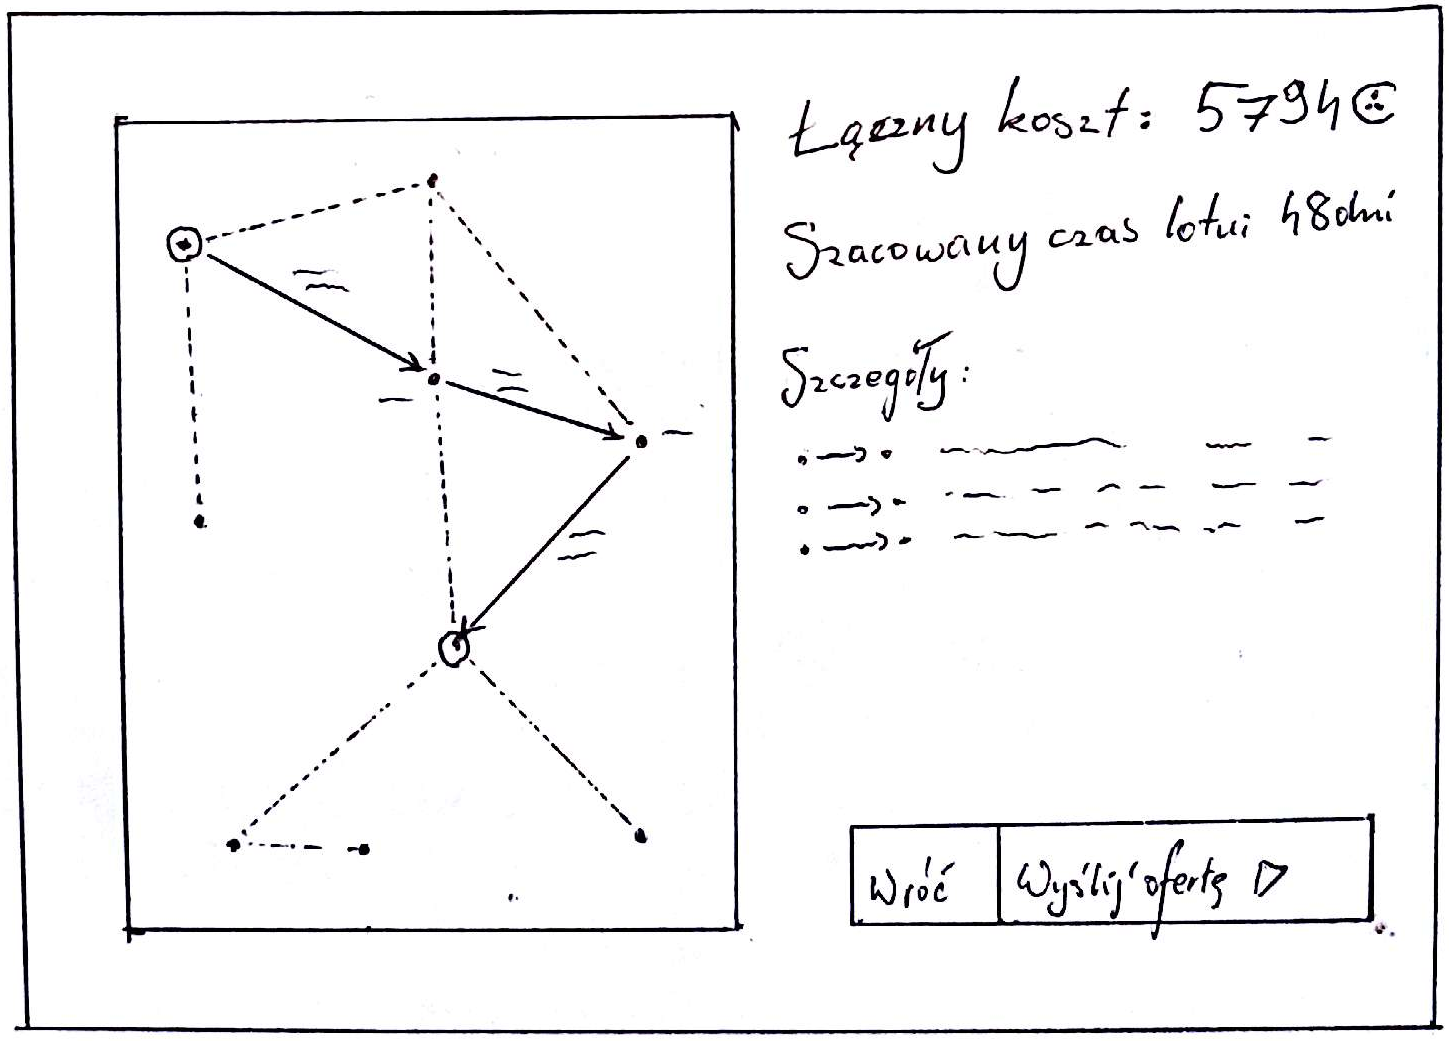 Łączny koszt: 5794
Szacowany czas lotu: 48dni
Szczegóły:
Wróć
Wyślij ofertę